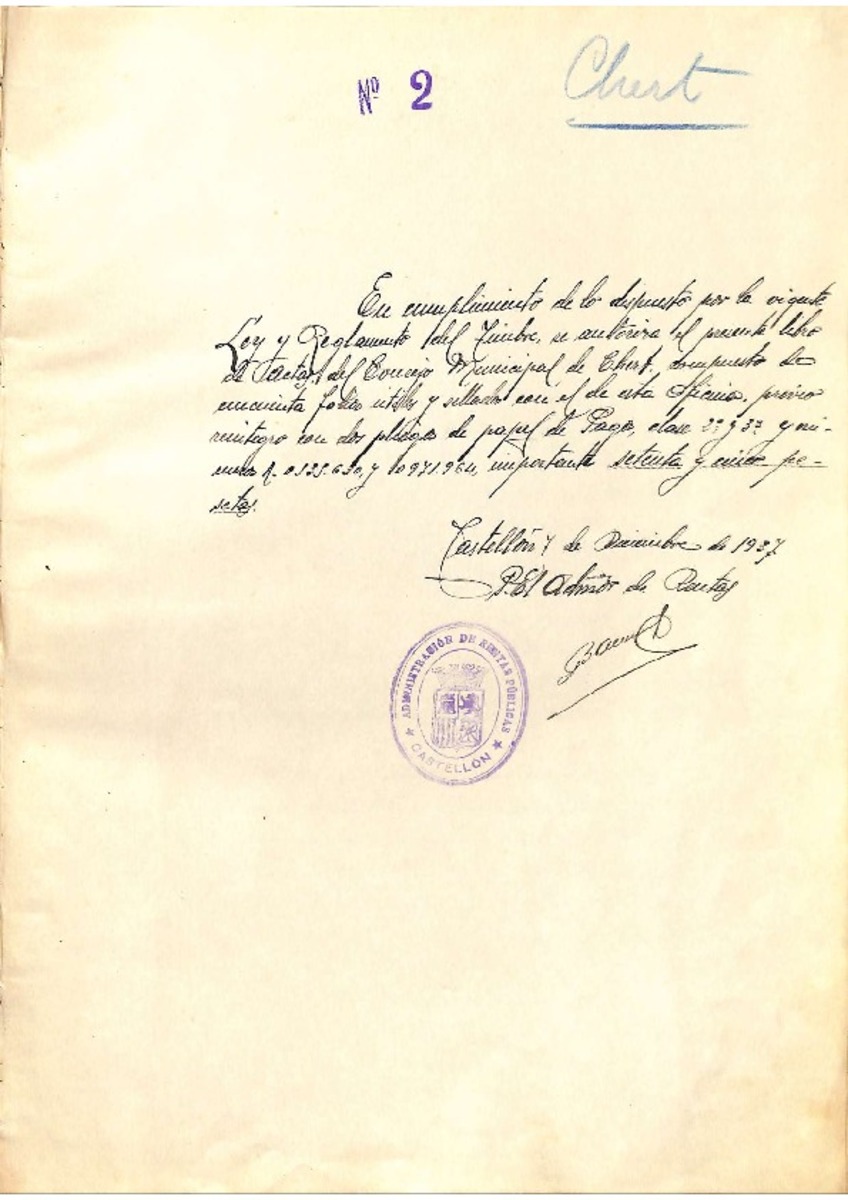 Nº 2
Chert
En cumplimiento de lo dispuesto por la vigente
Ley y Reglamento del Timbre, se autoriza el presente libro
de actas del Concejo Municipal de Chert, compuesto de
cincuenta folios utiles y sellado con el de esta Oficina, previo
reintegro con dos pliegos de papel de Pagos, clase 2ª y 3ª y nú-
meros A. 0.125.630, y 0971.964, importante setenta y cinco pe-
setas.
Castellón 7 de Diciembre de 1937
P. El Admor de Rentas
ADMINISTRACIÓN DE RENTAS PÚBLICAS
CASTELLÓN